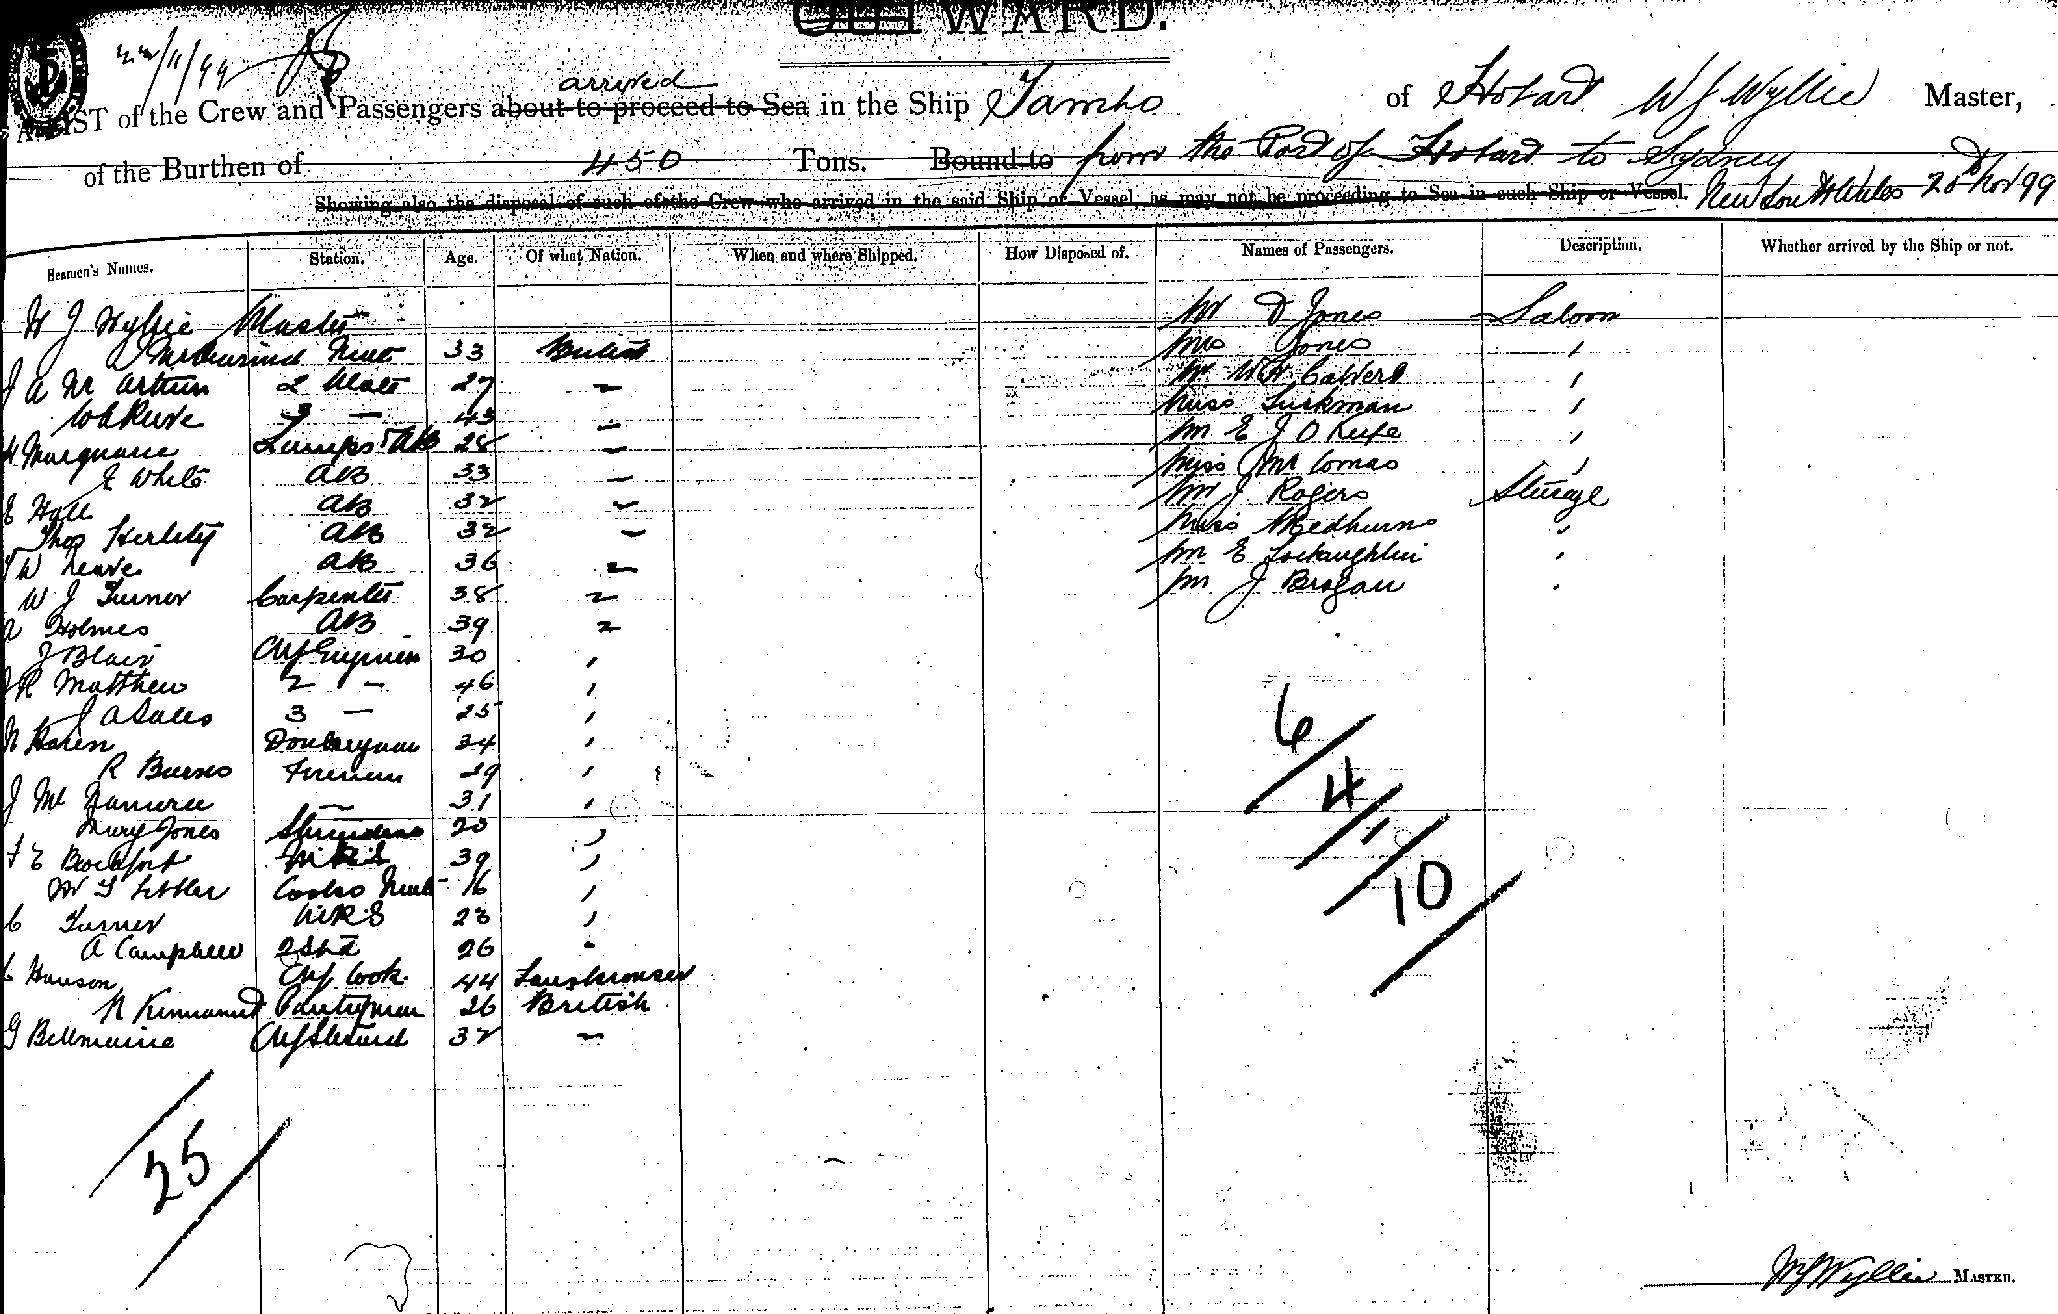 WARD.
22/11/99
arrived
A LIST of the Crew and Passengers about to proceed to Sea in the Ship Tambo of Hobart W J Wyllie Master,
of the Burthen of 450 Tons. Bound to from the Port of Hobart to Sydney
Showing also the disposal of such of the Crew who arrived in the said Ship or Vessel, as may not be proceeding to Sea in such Ship or Vessel. New South Wales 20th Nov 99
Seamen's Names. Station. Age. Of what Nation. When and where Shipped. How Disposed of. Names of Passengers. Description. Whether arrived by the Ship or not.
W J Wyllie Master Mr D Jones Saloon
Mate 33 British Mrs Jones "
J A Mc Arthur 2 Mate 27 " Mr W H Calvert "
3 — 43 " Miss Turkman "
Lamps & AB 28 " Mr E J O Keefe "
E White AB 33 " Miss "
E Hall AB 32 " Mr J Rogers Steerage
Thos Herlihy AB 32 " Miss Medhurns "
AB 36 " Mr E "
W J Turner Carpenter 38 " Mr J Brogan "
A Holmes AB 39 "
J Blair Chf Engineer 30 "
J R Matthew 2 — 46 "
J A Sales 3 — 25 "
Donkeyman 34 "
R Burns Fireman 29 "
— 31 "
Mary Jones Stewardess 20 "
39 "
Cooks Mate 16 "
C Turner 23 "
A Campbell 2 Std 26 "
C Hanson Chf Cook 44
Pantryman 26 British
G Bellmaine Chf Steward 32 "
6/4/1/10
25
W J Wyllie MASTER.